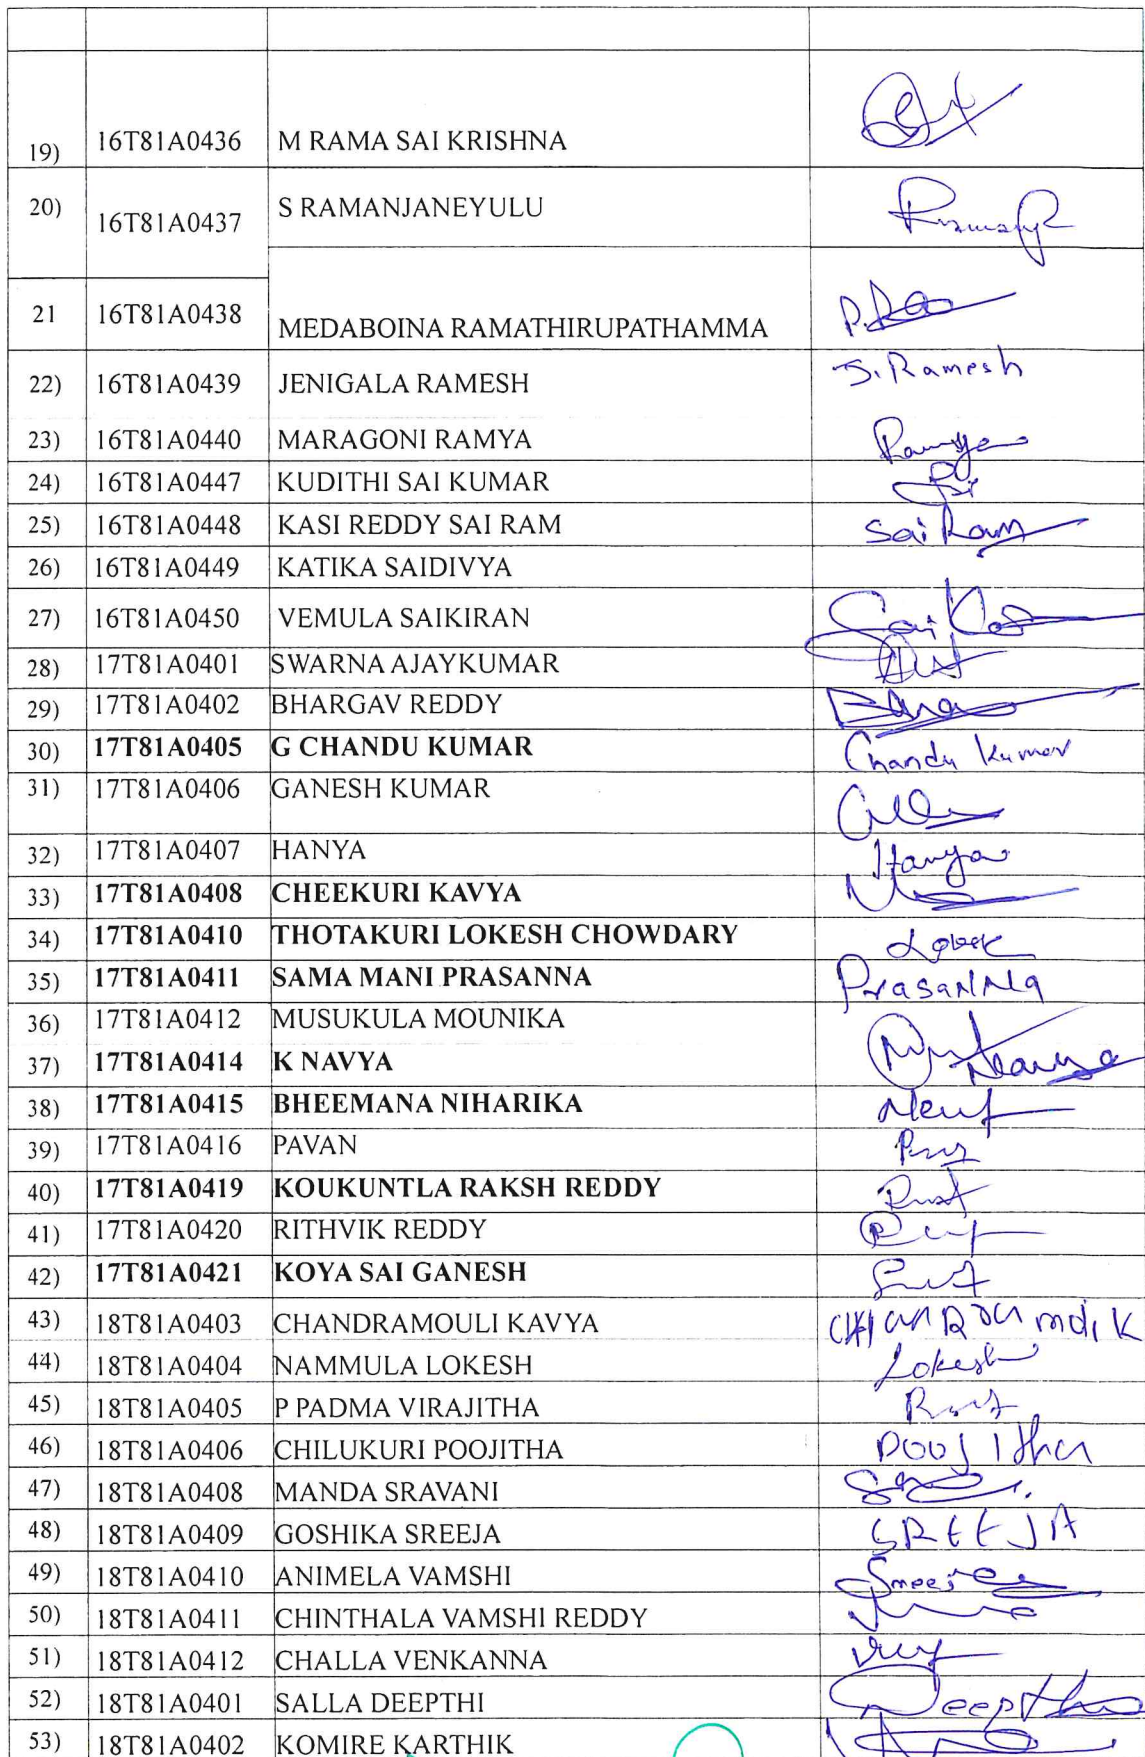 19) 16T81A0436 M RAMA SAI KRISHNA
20) 16T81A0437 S RAMANJANEYULU
21 16T81A0438 MEDABOINA RAMATHIRUPATHAMMA
22) 16T81A0439 JENIGALA RAMESH J. Ramesh
23) 16T81A0440 MARAGONI RAMYA Ramya
24) 16T81A0447 KUDITHI SAI KUMAR
25) 16T81A0448 KASI REDDY SAI RAM Sai Ram
26) 16T81A0449 KATIKA SAIDIVYA
27) 16T81A0450 VEMULA SAIKIRAN
28) 17T81A0401 SWARNA AJAYKUMAR
29) 17T81A0402 BHARGAV REDDY
30) 17T81A0405 G CHANDU KUMAR Chandu Kumar
31) 17T81A0406 GANESH KUMAR
32) 17T81A0407 HANYA Hanya
33) 17T81A0408 CHEEKURI KAVYA
34) 17T81A0410 THOTAKURI LOKESH CHOWDARY
35) 17T81A0411 SAMA MANI PRASANNA PrasaNNa
36) 17T81A0412 MUSUKULA MOUNIKA
37) 17T81A0414 K NAVYA
38) 17T81A0415 BHEEMANA NIHARIKA
39) 17T81A0416 PAVAN
40) 17T81A0419 KOUKUNTLA RAKSH REDDY
41) 17T81A0420 RITHVIK REDDY
42) 17T81A0421 KOYA SAI GANESH
43) 18T81A0403 CHANDRAMOULI KAVYA
44) 18T81A0404 NAMMULA LOKESH Lokesh
45) 18T81A0405 P PADMA VIRAJITHA
46) 18T81A0406 CHILUKURI POOJITHA Poojitha
47) 18T81A0408 MANDA SRAVANI
48) 18T81A0409 GOSHIKA SREEJA SREEJA
49) 18T81A0410 ANIMELA VAMSHI
50) 18T81A0411 CHINTHALA VAMSHI REDDY
51) 18T81A0412 CHALLA VENKANNA
52) 18T81A0401 SALLA DEEPTHI Deepthi
53) 18T81A0402 KOMIRE KARTHIK